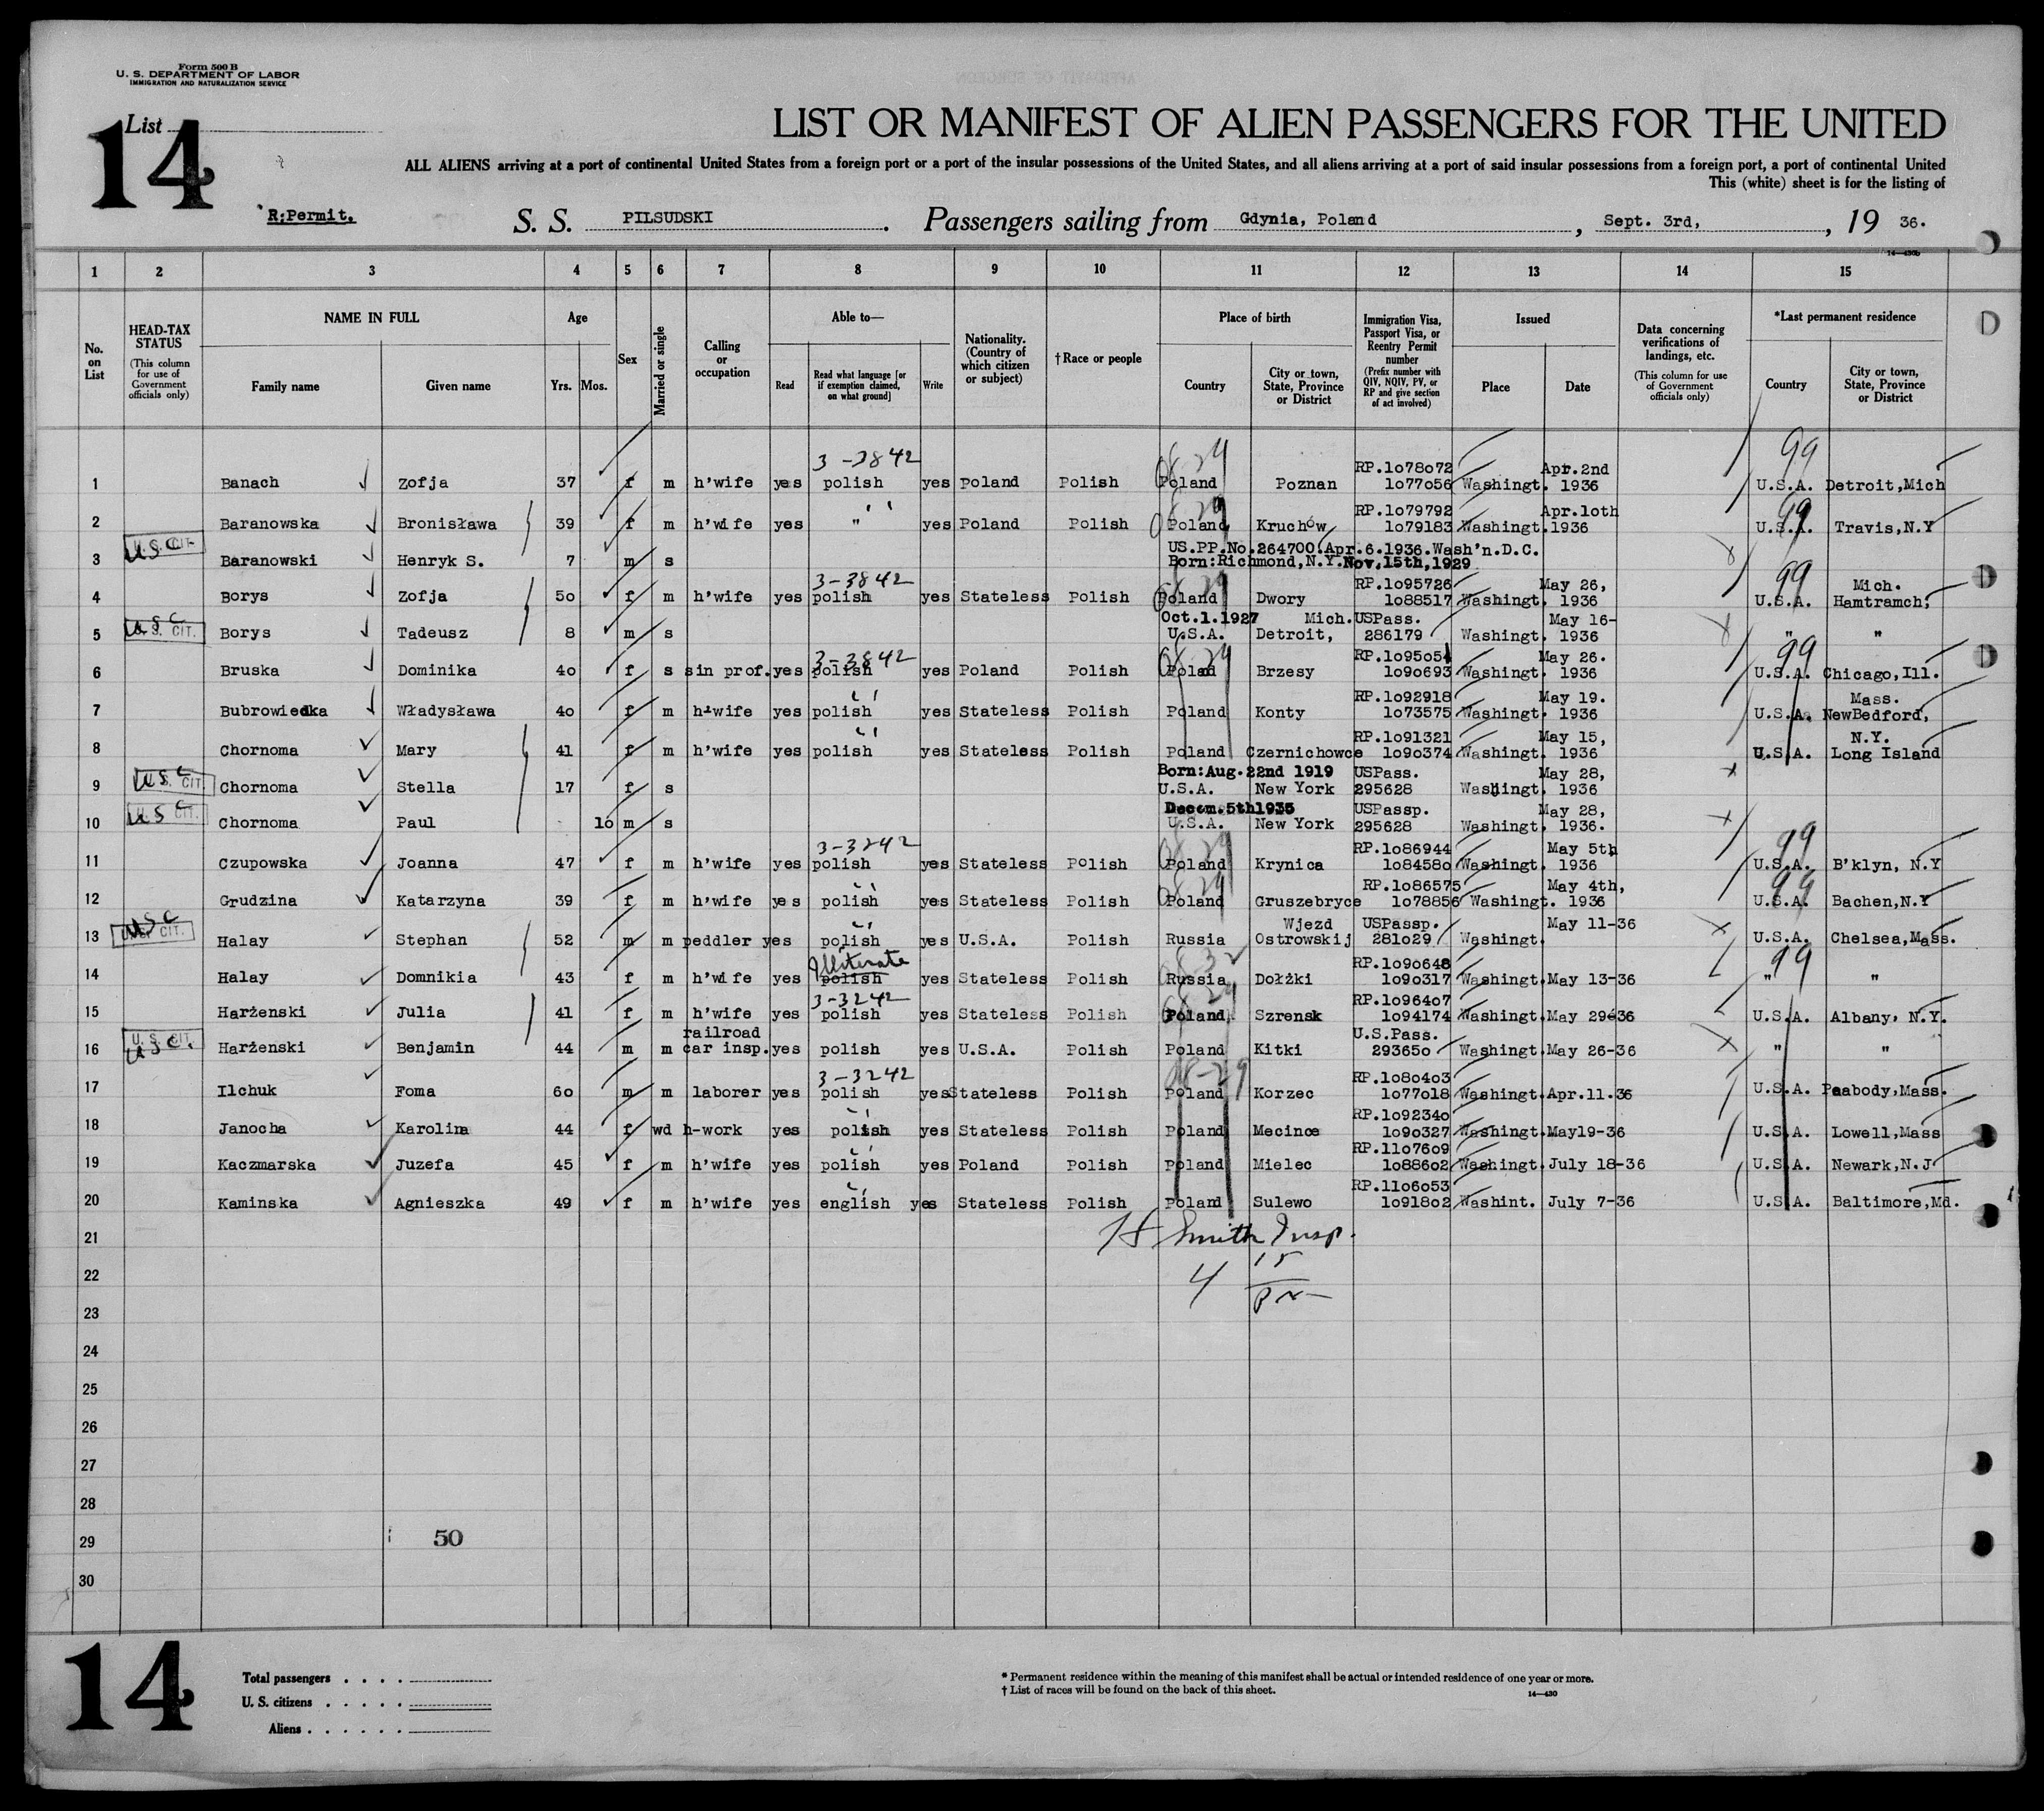 Form 500 B
U. S. DEPARTMENT OF LABOR
IMMIGRATION AND NATURALIZATION SERVICE
List
14
LIST OR MANIFEST OF ALIEN PASSENGERS FOR THE UNITED
ALL ALIENS arriving at a port of continental United States from a foreign port or a port of the insular possessions of the United States, and all aliens arriving at a port of said insular possessions from a foreign port, a port of continental United
This (white) sheet is for the listing of
R:Permit. S. S. PILSUDSKI. Passengers sailing from Gdynia, Poland, Sept. 3rd, , 19 36.
14—430b
1 2 3 4 5 6 7 8 9 10 11 12 13 14 15
No. on List
HEAD-TAX STATUS (This column for use of Government officials only)
NAME IN FULL Family name Given name
Age Yrs. Mos.
Sex
Married or single
Calling or occupation
Able to— Read Read what language [or if exemption claimed, on what ground] Write
Nationality. (Country of which citizen or subject)
†Race or people
Place of birth Country City or town, State, Province or District
Immigration Visa, Passport Visa, or Reentry Permit number (Prefix number with QIV, NQIV, PV, or RP and give section of act involved)
Issued Place Date
Data concerning verifications of landings, etc. (This column for use of Government officials only)
*Last permanent residence Country City or town, State, Province or District
3-3842 99
RP.1o78o72 Apr.2nd
1 Banach Zofja 37 f m h'wife yes polish yes Poland Polish Poland Poznan 1o77o56 Washingt. 1936 U.S.A. Detroit,Mich
RP.1o79792 Apr.1oth
2 Baranowska Bronisława 39 f m h'wife yes " yes Poland Polish Poland Kruchów 1o79183 Washingt. 1936 U.S.A. Travis,N.Y
U.S. CIT. USC
US.PP.No.264700.Apr.6.1936.Wash'n.D.C.
3 Baranowski Henryk S. 7 m s Born:Richmond,N.Y.Nov.15th,1929
3-3842 99
RP.1o95726 May 26, Mich.
4 Borys Zofja 5o f m h'wife yes polish yes Stateless Polish Poland Dwory 1o88517 Washingt. 1936 U.S.A. Hamtramch,
U.S. CIT. USC
Oct.1.1927 Mich. USPass. May 16-
5 Borys Tadeusz 8 m s U.S.A. Detroit, 286179 Washingt. 1936 " "
3-3842 99
RP.1o95o51 May 26.
6 Bruska Dominika 4o f s sin prof. yes polish yes Poland Polish Polad Brzesy 1o9o693 Washingt. 1936 U.S.A. Chicago,Ill.
RP.1o92918 May 19. Mass.
7 Bubrowiedka Władysława 4o f m h-wife yes polish yes Stateless Polish Poland Konty 1o73575 Washingt. 1936 U.S.A. NewBedford,
RP.1o91321 May 15, N.Y.
8 Chornoma Mary 41 f m h'wife yes polish yes Stateless Polish Poland Czernichowce 1o9o374 Washingt. 1936 U.S.A. Long Island
U.S. CIT. USC
Born:Aug.22nd 1919 USPass. May 28,
9 Chornoma Stella 17 f s U.S.A. New York 295628 Washingt. 1936
U.S. CIT. USC
Decem.5th1935 USPassp. May 28,
10 Chornoma Paul 1o m s U.S.A. New York 295628 Washingt. 1936.
3-3242 99
RP.1o86944 May 5th
11 Czupowska Joanna 47 f m h'wife yes polish yes Stateless Polish Poland Krynica 1o8458o Washingt. 1936 U.S.A. B'klyn, N.Y
99
RP.1o86575 May 4th,
12 Grudzina Katarzyna 39 f m h'wife yes polish yes Stateless Polish Poland Gruszebryce 1o78856 Washingt. 1936 U.S.A. Bachen,N.Y
U.S. CIT. USC
Wjezd USPassp. May 11-36
13 Halay Stephan 52 m m peddler yes polish yes U.S.A. Polish Russia Ostrowskij 281o29 Washingt. U.S.A. Chelsea,Mass.
Illiterate 99
RP.1o9o648
14 Halay Domnikia 43 f m h'wife yes polish yes Stateless Polish Russia Dołżki 1o9o317 Washingt. May 13-36 " "
3-3242
RP.1o964o7
15 Harżenski Julia 41 f m h'wife yes polish yes Stateless Polish Poland Szrensk 1o94174 Washingt. May 29-36 U.S.A. Albany, N.Y.
U.S. CIT. USC.
railroad U.S.Pass.
16 Harżenski Benjamin 44 m m car insp. yes polish yes U.S.A. Polish Poland Kitki 29365o Washingt. May 26-36 " "
3-3242
RP.1o8o4o3
17 Ilchuk Foma 6o m m laborer yes polish yes Stateless Polish Poland Korzec 1o77o18 Washingt. Apr.11.36 U.S.A. Peabody,Mass.
RP.1o9234o
18 Janocha Karolina 44 f wd h-work yes polish yes Stateless Polish Poland Mecince 1o9o327 Washingt. May19-36 U.S.A. Lowell,Mass
RP.11o76o9
19 Kaczmarska Juzefa 45 f m h'wife yes polish yes Poland Polish Poland Mielec 1o886o2 Washingt. July 18-36 U.S.A. Newark,N.J
RP.11o6o53
20 Kaminska Agnieszka 49 f m h'wife yes english yes Stateless Polish Poland Sulewo 1o918o2 Washint. July 7-36 U.S.A. Baltimore,Md.
21 H Smith Insp.
22 4 15
23
24
25
26
27
28
29 50
30
14
Total passengers
U. S. citizens
Aliens
* Permanent residence within the meaning of this manifest shall be actual or intended residence of one year or more.
† List of races will be found on the back of this sheet.
14—430